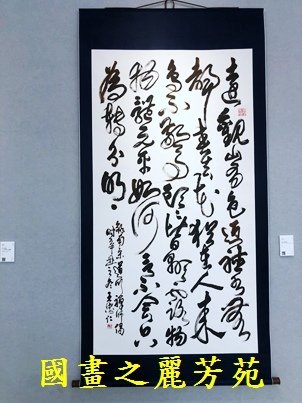 遠觀山有色近聽水無
聲春去花猶在人來
鳥不驚頭頭皆顯露物
物體元平如何言不會只
為分明
錄南宋道川禪師偈
國畫之麗芳苑